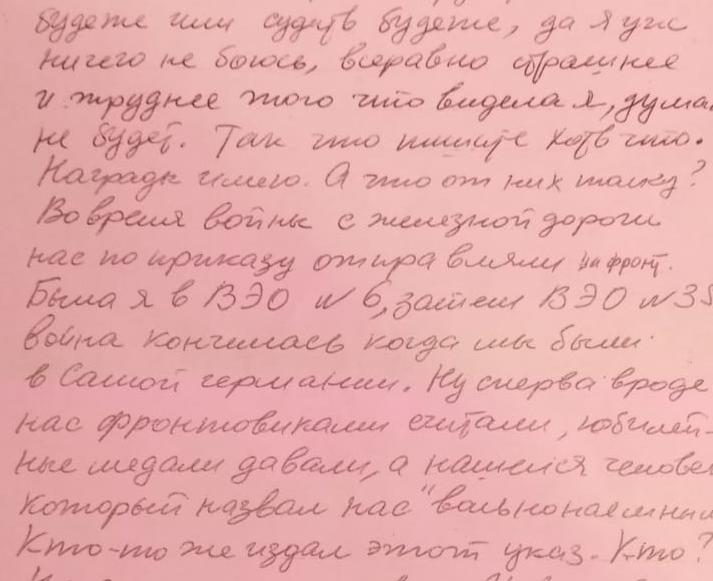 будете или судить будете, да я уж
ничего не боюсь, всеравно страшнее
и труднее этого что видела я, дума
не будет. Так что пишите хоть что.
Награды имею. А что от них толку?
Во время войны с железной дороги
нас по приказу отправляли на фронт.
Была я в ВЭО №6, затем ВЭО №35
война кончилась когда мы были
в самой германии. Ну сперва вроде
нас фронтовиками считали, юбилей-
ные медали давали, а нашелся челове
который назвал нас "вольнонаемным
Кто-то же издал этот указ. Кто?